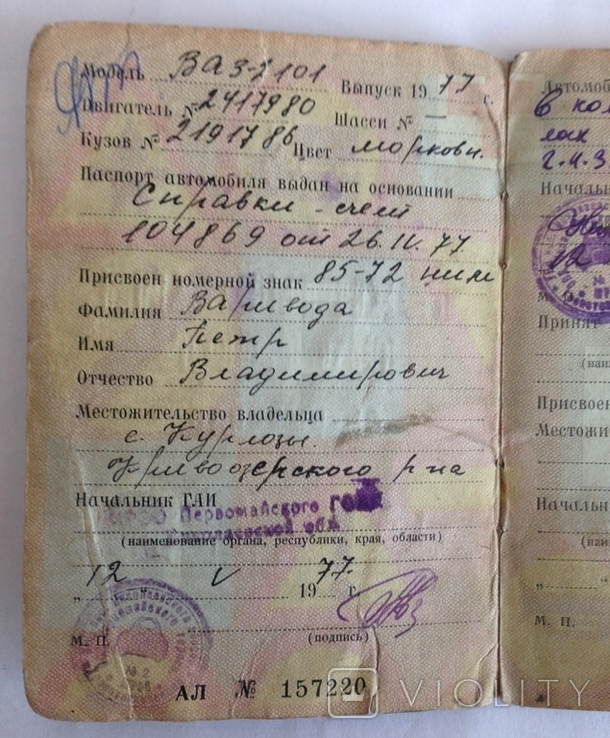 Модель ВАЗ-2101 Выпуск 1977 г.
Двигатель № 2417980 Шасси № —
Кузов № 2191786 Цвет морковн.
Паспорт автомобиля выдан на основании
Справки-счет
104869 от 26.IV.77
Присвоен номерной знак 85-72
Фамилия Варивода
Имя Петр
Отчество Владимирович
Местожительство владельца
с. Курлозы
Кривоозерского р-на
Начальник ГАИ
Первомайского
Николаевской обл.
(наименование органа, республики, края, области)
„12 V 1977 г.
М. П. (подпись)
№ 2
АЛ № 157220
Автомоб
в ко
лах
Начальн
М.
Принят
(наи
Присвоен
Местожи
Начальн
(наи
М. П.
VIOLITY